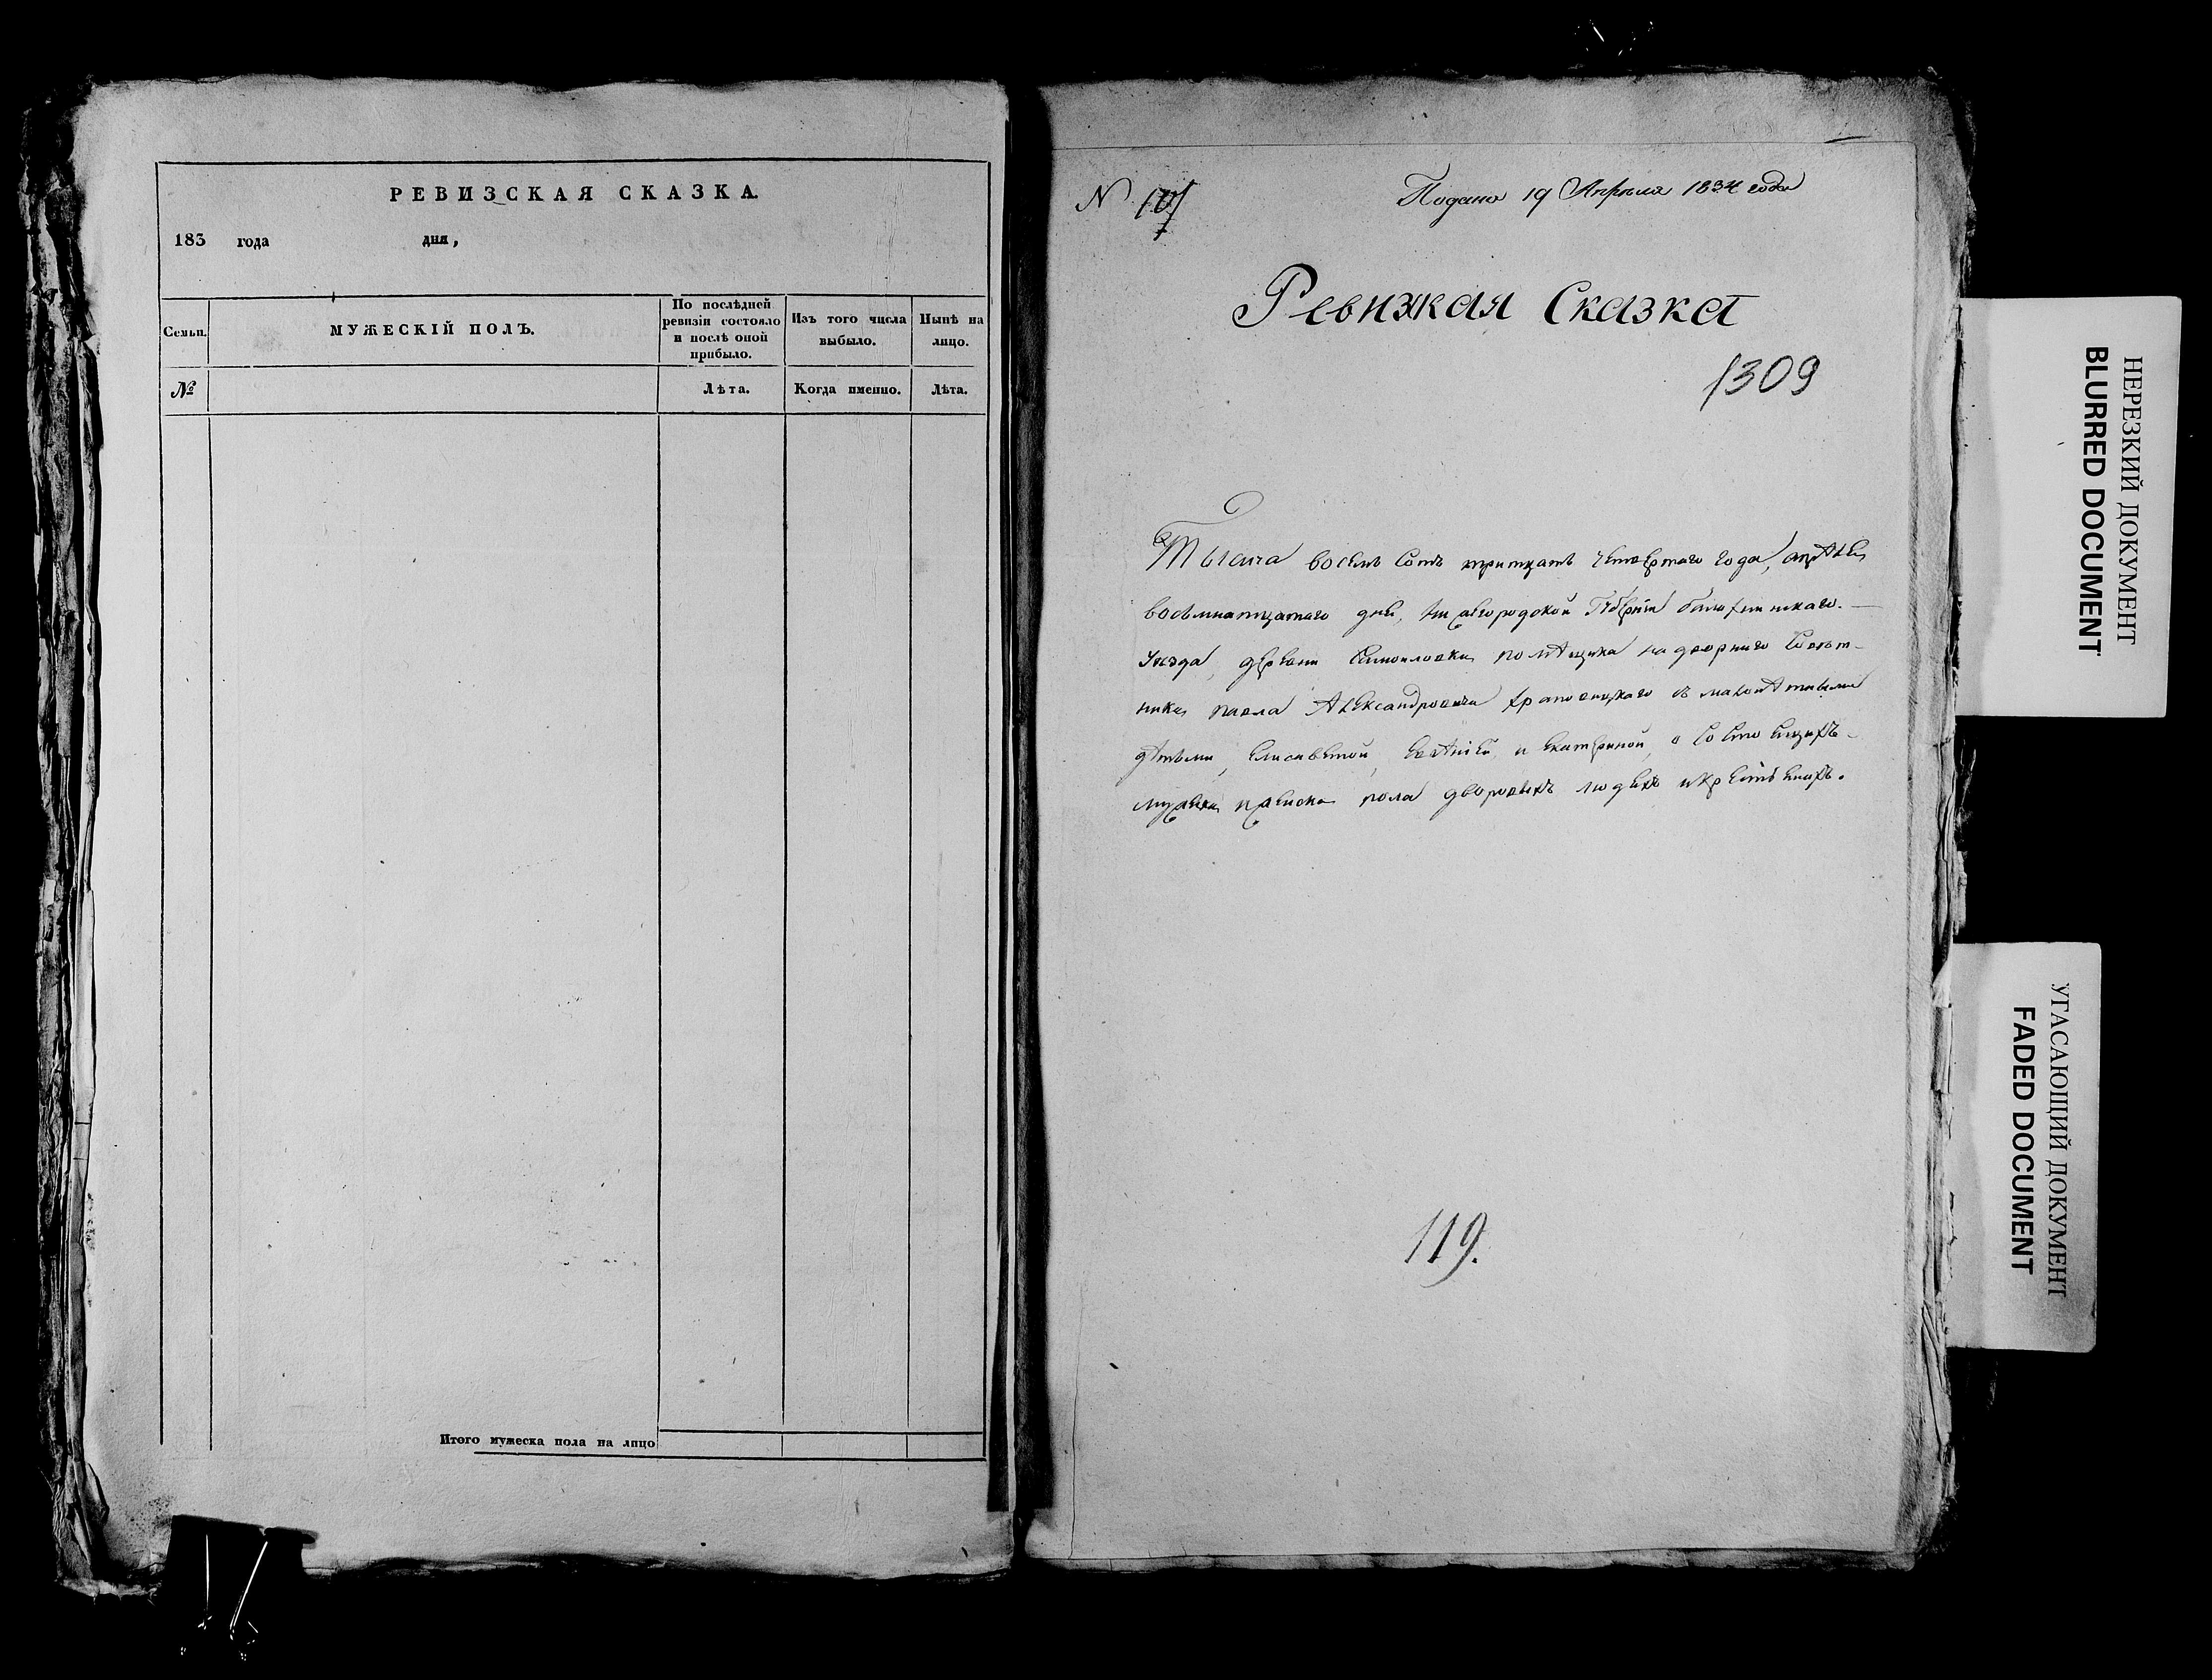 РЕВИЗСКАЯ СКАЗКА.
183 года дня,
Семьи.
МУЖЕСКІЙ ПОЛЪ.
По послѣдней ревизіи состояло и послѣ оной прибыло.
Изъ того числа выбыло.
Нынѣ на лицо.
№
Лѣта.
Когда именно.
Лѣта.
Итого мужеска пола на лицо
N 107
Подано 19 Апреля 1834 года
Ревизкая Сказка
1309
Тысяча восемь сотъ тритцать четвертаго года, апрѣля
восемнатцатаго дня, Нижегородской Губерніи балахнинскаго
уѣзда, деревни помѣщика надворнаго Совѣт-
ника павла Александровича храповицкаго съ малолѣтными
дѣтьми, Елисаветой, и Екатериной, о состоящихъ
мужеска и женска пола дворовыхъ людехъ и крестьенахъ.
119.
НЕРЕЗКИЙ ДОКУМЕНТ
BLURRED DOCUMENT
УГАСАЮЩИЙ ДОКУМЕНТ
FADED DOCUMENT